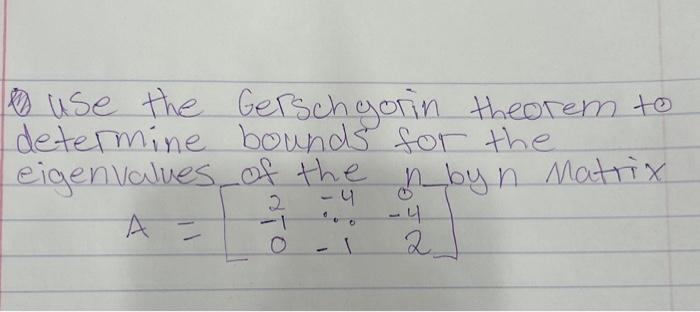 use the Gerschgorin theorem to
determine bounds for the
eigenvalues of the n by n Matrix
2 -4 0
A = -1 ⋱ -4
0 -1 2